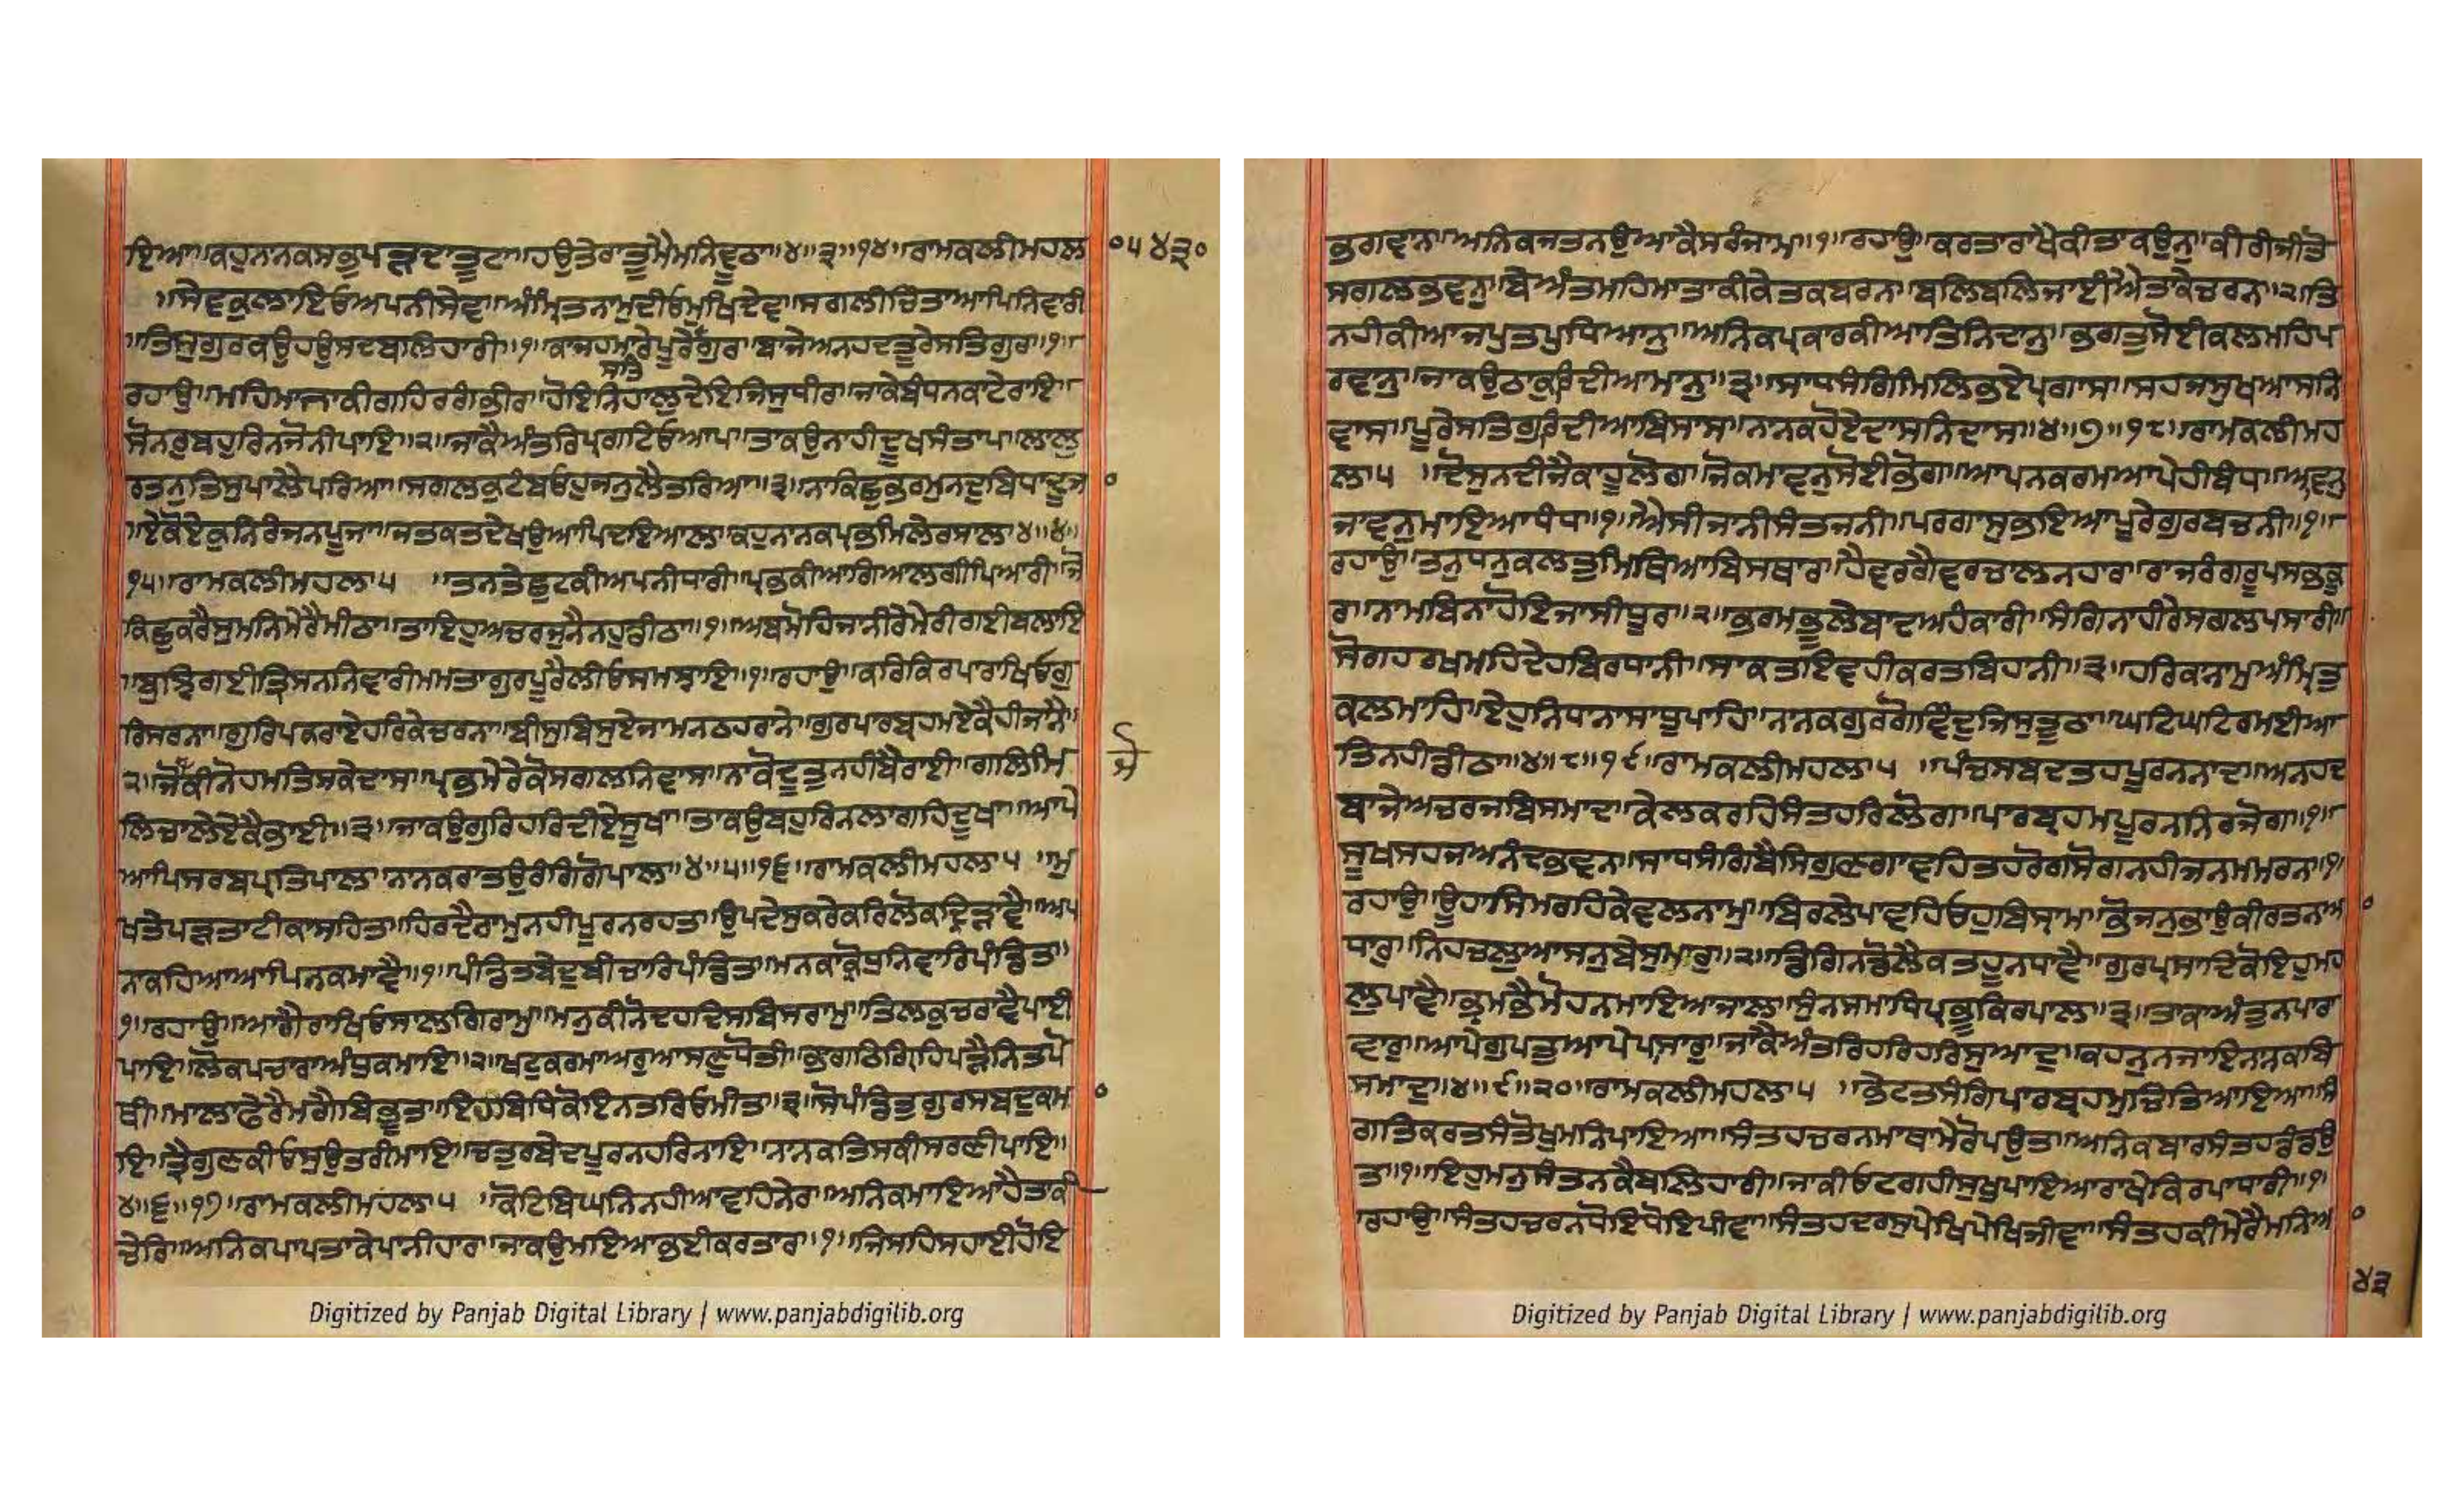 ਇਆ॥ਕਹੁਨਾਨਕਸਭੁਪੜਦਾਤੂਟਾ॥ਹਉਤੇਰਾਤੂਮੈਮਨਿਵੂਠਾ॥੪॥੩॥੧੪॥ਰਾਮਕਲੀਮਹਲਾ
੦੫੪੩੦
॥ਸੇਵਕੁਲਾਇਓਅਪਨੀਸੇਵ॥ਅੰਮ੍ਰਿਤਨਾਮੁਦੀਓਮੁਖਿਦੇਵ॥ਸਗਲੀਚਿੰਤਾਆਪਿਨਿਵਾਰੀ
॥ਤਿਸੁਗੁਰਕਉਹਉਸਦਬਲਿਹਾਰੀ॥੧॥ਕਾਜਹਮਾਰੇਪੂਰੇਗੁਰਾ॥ਬਾਜੇਅਨਹਦਤੂਰੇਸਤਿਗੁਰਾ॥੧॥
ਰਹਾਉ॥ਮਹਿਮਾਜਾਕੀਗਹਿਰਗੰਭੀਰਾ॥ਹੋਇਨਿਹਾਲੁਦੇਇਜਿਸੁਧੀਰਾ॥ਜਾਕੇਬੰਧਨਕਾਟੇਰਾਇ॥
ਸੋਨਰੁਬਹੁਰਿਨਜੋਨੀਪਾਇ॥੨॥ਜਾਕੈਅੰਤਰਿਪ੍ਰਗਟਿਓਆਪ॥ਤਾਕਉਨਾਹੀਦੂਖਸੰਤਾਪ॥ਲਾਲੁ
ਰਤਨੁਤਿਸੁਪਾਲੈਪਰਿਆ॥ਸਗਲਕੁਟੰਬਓਹੁਜਨੁਲੈਤਰਿਆ॥੩॥ਨਾਕਿਛੁਭਰਮੁਨਦੁਬਿਧਾਦੂਜਾ
॥ਏਕੋਏਕੁਨਿਰੰਜਨਪੂਜਾ॥ਜਤਕਤਦੇਖਉਆਪਿਦਇਆਲ॥ਕਹੁਨਾਨਕਪ੍ਰਭਮਿਲੇਰਸਾਲ॥੪॥੪॥
੧੫॥ਰਾਮਕਲੀਮਹਲਾ੫ ॥ਤਨਤੇਛੁਟਕੀਅਪਨੀਧਾਰੀ॥ਪ੍ਰਭਕੀਆਗਿਆਲਗੀਪਿਆਰੀ॥ਜੋ
ਕਿਛੁਕਰੈਸੁਮਨਿਮੇਰੈਮੀਠਾ॥ਤਾਇਹੁਅਚਰਜੁਨੈਨਹੁਡੀਠਾ॥੧॥ਅਬਮੋਹਿਜਾਨੀਰੇਮੇਰੀਗਈਬਲਾਇ
॥ਬੁਝਿਗਈਤ੍ਰਿਸਨਨਿਵਾਰੀਮਮਤਾਗੁਰਪੂਰੈਲੀਓਸਮਝਾਇ॥੧॥ਰਹਾਉ॥ਕਰਿਕਿਰਪਾਰਾਖਿਓਗੁ
ਰਿਸਰਨਾ॥ਗੁਰਿਪਕਰਾਏਹਰਿਕੇਚਰਨਾ॥ਬੀਸਬਿਸੁਏਜਾਮਨਠਹਰਾਨੇ॥ਗੁਰਪਾਰਬ੍ਰਹਮਏਕੈਹੀਜਾਨੈ॥
੨॥ਜੋਕੀਨੋਹਮਤਿਸਕੇਦਾਸ॥ਪ੍ਰਭਮੇਰੇਕੋਸਗਲਨਿਵਾਸ॥ਨਾਕੋਦੂਤੁਨਹੀਬੈਰਾਈ॥ਗਲਿਮਿ
ਲਿਚਾਲੇਏਕੈਭਾਈ॥੩॥ਜਾਕਉਗੁਰਿਹਰਿਦੀਏਸੂਖਾ॥ਤਾਕਉਬਹੁਰਿਨਲਾਗਹਿਦੂਖਾ॥ਆਪੇ
ਆਪਿਸਰਬਪ੍ਰਤਿਪਾਲ॥ਨਾਨਕਰਾਤਉਰੰਗਿਗੋਪਾਲ॥੪॥੫॥੧੬॥ਰਾਮਕਲੀਮਹਲਾ੫ ॥ਮੁ
ਖਤੇਪੜਤਾਟੀਕਾਸਹਿਤ॥ਹਿਰਦੈਰਾਮੁਨਹੀਪੂਰਨਰਹਤ॥ਉਪਦੇਸੁਕਰੇਕਰਿਲੋਕਦ੍ਰਿੜਾਵੈ॥ਅਪ
ਨਾਕਹਿਆਆਪਿਨਕਮਾਵੈ॥੧॥ਪੰਡਿਤਬੇਦੁਬੀਚਾਰਿਪੰਡਿਤ॥ਮਨਕਾਕ੍ਰੋਧੁਨਿਵਾਰਿਪੰਡਿਤ॥
੧॥ਰਹਾਉ॥ਆਗੈਰਾਖਿਓਸਾਲਗਿਰਾਮੁ॥ਮਨੁਕੀਨੋਦਹਦਿਸਬਿਸਰਾਮੁ॥ਤਿਲਕੁਚਰਾਵੈਪਾਈ
ਪਾਇ॥ਲੋਕਪਚਾਰਾਅੰਧੁਕਮਾਇ॥੨॥ਖਟੁਕਰਮਾਅਰੁਆਸਣੁਧੋਤੀ॥ਭਾਗਠਿਗ੍ਰਿਹਿਪੜੈਨਿਤਪੋ
ਥੀ॥ਮਾਲਾਫੇਰੈਮੰਗੈਬਿਭੂਤ॥ਇਹਬਿਧਿਕੋਇਨਤਰਿਓਮੀਤ॥੩॥ਸੋਪੰਡਿਤੁਗੁਰਸਬਦੁਕਮਾ
ਇ॥ਤ੍ਰੈਗੁਣਕੀਓਸੁਉਤਰੀਮਾਇ॥ਚਤੁਰਬੇਦਪੂਰਨਹਰਿਨਾਇ॥ਨਾਨਕਤਿਸਕੀਸਰਣੀਪਾਇ॥
੪॥੬॥੧੭॥ਰਾਮਕਲੀਮਹਲਾ੫ ॥ਕੋਟਿਬਿਘਨਨਹੀਆਵਹਿਨੇਰਿ॥ਅਨਿਕਮਾਇਆਹੈਤਾਕੀ
ਚੇਰਿ॥ਅਨਿਕਪਾਪਤਾਕੇਪਾਨੀਹਾਰ॥ਜਾਕਉਮਇਆਭਈਕਰਤਾਰ॥੧॥ਜਿਸਹਿਸਹਾਈਹੋਇ
Digitized by Panjab Digital Library | www.panjabdigilib.org
ਭਗਵਾਨ॥ਅਨਿਕਜਤਨਉਆਕੈਸਰੰਜਾਮ॥੧॥ਰਹਾਉ॥ਕਰਤਾਰਾਖੈਕੀਤਾਕਉਨੁ॥ਕੀਰੀਜੀਤੋ
ਸਗਲਾਭਵਨੁ॥ਬੇਅੰਤਮਹਿਮਾਤਾਕੀਕੇਤਕਬਰਨ॥ਬਲਿਬਲਿਜਾਈਐਤਾਕੇਚਰਨ॥੨॥ਤਿ
ਨਹੀਕੀਆਜਪੁਤਪੁਧਿਆਨੁ॥ਅਨਿਕਪ੍ਰਕਾਰਕੀਆਤਿਨਿਦਾਨੁ॥ਭਗਤੁਸੋਈਕਲਮਹਿਪ
ਰਵਾਨੁ॥ਜਾਕਉਠਾਕੁਰਿਦੀਆਮਾਨੁ॥੩॥ਸਾਧਸੰਗਿਮਿਲਿਭਏਪ੍ਰਗਾਸ॥ਸਹਜਸੂਖਆਸਨਿ
ਵਾਸ॥ਪੂਰੈਸਤਿਗੁਰਿਦੀਆਬਿਸਾਸ॥ਨਾਨਕਹੋਏਦਾਸਨਿਦਾਸ॥੪॥੭॥੧੮॥ਰਾਮਕਲੀਮਹ
ਲਾ੫ ॥ਦੋਸੁਨਦੀਜੈਕਾਹੂਲੋਗ॥ਜੋਕਮਾਵਨੁਸੋਈਭੋਗ॥ਆਪਨਕਰਮਆਪੇਹੀਬੰਧ॥ਆਵਨੁ
ਜਾਵਨੁਮਾਇਆਧੰਧ॥੧॥ਐਸੀਜਾਨੀਸੰਤਜਨੀ॥ਪਰਗਾਸੁਭਇਆਪੂਰੇਗੁਰਬਚਨੀ॥੧॥
ਰਹਾਉ॥ਤਨੁਧਨੁਕਲਤੁਮਿਥਿਆਬਿਸਥਾਰ॥ਹੈਵਰਗੈਵਰਚਾਲਨਹਾਰ॥ਰਾਜਰੰਗਰੂਪਸਭਿਕੂ
ਰ॥ਨਾਮਬਿਨਾਹੋਇਜਾਸੀਧੂਰ॥੨॥ਭਰਮਿਭੂਲੇਬਾਦਿਅਹੰਕਾਰੀ॥ਸੰਗਿਨਾਹੀਰੇਸਗਲਪਸਾਰੀ॥
ਸੋਗਹਰਖਮਹਿਦੇਹਬਿਰਧਾਨੀ॥ਸਾਕਤਇਵਹੀਕਰਤਬਿਹਾਨੀ॥੩॥ਹਰਿਕਾਨਾਮੁਅੰਮ੍ਰਿਤੁ
ਕਲਮਾਹਿ॥ਏਹੁਨਿਧਾਨਾਸਾਧੂਪਾਹਿ॥ਨਾਨਕਗੁਰੁਗੋਵਿਦੁਜਿਸੁਤੂਠਾ॥ਘਟਿਘਟਿਰਮਈਆ
ਤਿਨਹੀਡੀਠਾ॥੪॥੮॥੧੯॥ਰਾਮਕਲੀਮਹਲਾ੫ ॥ਪੰਚਸਬਦਤਹਪੂਰਨਨਾਦ॥ਅਨਹਦ
ਬਾਜੇਅਚਰਜਬਿਸਮਾਦ॥ਕੇਲਕਰਹਿਸੰਤਹਰਿਲੋਗ॥ਪਾਰਬ੍ਰਹਮਪੂਰਨਨਿਰਜੋਗ॥੧॥
ਸੂਖਸਹਜਆਨੰਦਭਵਨ॥ਸਾਧਸੰਗਿਬੈਸਿਗੁਣਗਾਵਹਿਤਹਰੋਗਸੋਗਨਹੀਜਨਮਮਰਨ॥੧॥
ਰਹਾਉ॥ਊਹਾਸਿਮਰਹਿਕੇਵਲਨਾਮੁ॥ਬਿਰਲੇਪਾਵਹਿਓਹੁਬਿਸ੍ਰਾਮੁ॥ਭੋਜਨੁਭਾਉਕੀਰਤਨਆ
ਧਾਰੁ॥ਨਿਹਚਲੁਆਸਨੁਬੇਸੁਮਾਰੁ॥੨॥ਡਿਗਿਨਡੋਲੈਕਤਹੂਨਧਾਵੈ॥ਗੁਰਪ੍ਰਸਾਦਿਕੋਇਹੁਮਹ
ਲੁਪਾਵੈ॥ਭ੍ਰਮਭੈਮੋਹਨਮਾਇਆਜਾਲ॥ਸੁੰਨਸਮਾਧਿਪ੍ਰਭੂਕਿਰਪਾਲ॥੩॥ਤਾਕਾਅੰਤੁਨਪਾਰਾ
ਵਾਰੁ॥ਆਪੇਗੁਪਤੁਆਪੇਪਾਸਾਰੁ॥ਜਾਕੈਅੰਤਰਿਹਰਿਹਰਿਸੁਆਦੁ॥ਕਹਨੁਨਜਾਇਨਾਨਕਬਿ
ਸਮਾਦੁ॥੪॥੯॥੨੦॥ਰਾਮਕਲੀਮਹਲਾ੫ ॥ਭੇਟਤਸੰਗਿਪਾਰਬ੍ਰਹਮੁਚਿਤਿਆਇਆ॥ਸੰ
ਗਤਿਕਰਤਸੰਤੋਖੁਮਨਿਪਾਇਆ॥ਸੰਤਹਚਰਨਮਾਥਾਮੇਰੋਪਉਤ॥ਅਨਿਕਬਾਰਸੰਤਹਡੰਡਉ
ਤ॥੧॥ਇਹੁਮਨੁਸੰਤਨਕੈਬਲਿਹਾਰੀ॥ਜਾਕੀਓਟਗਹੀਸੁਖੁਪਾਇਆਰਾਖੇਕਿਰਪਾਧਾਰੀ॥੧॥
ਰਹਾਉ॥ਸੰਤਹਚਰਨਧੋਇਧੋਇਪੀਵਾ॥ਸੰਤਹਦਰਸੁਪੇਖਿਪੇਖਿਜੀਵਾ॥ਸੰਤਹਕੀਮੇਰੈਮਨਿਆ
੪੩
Digitized by Panjab Digital Library | www.panjabdigilib.org